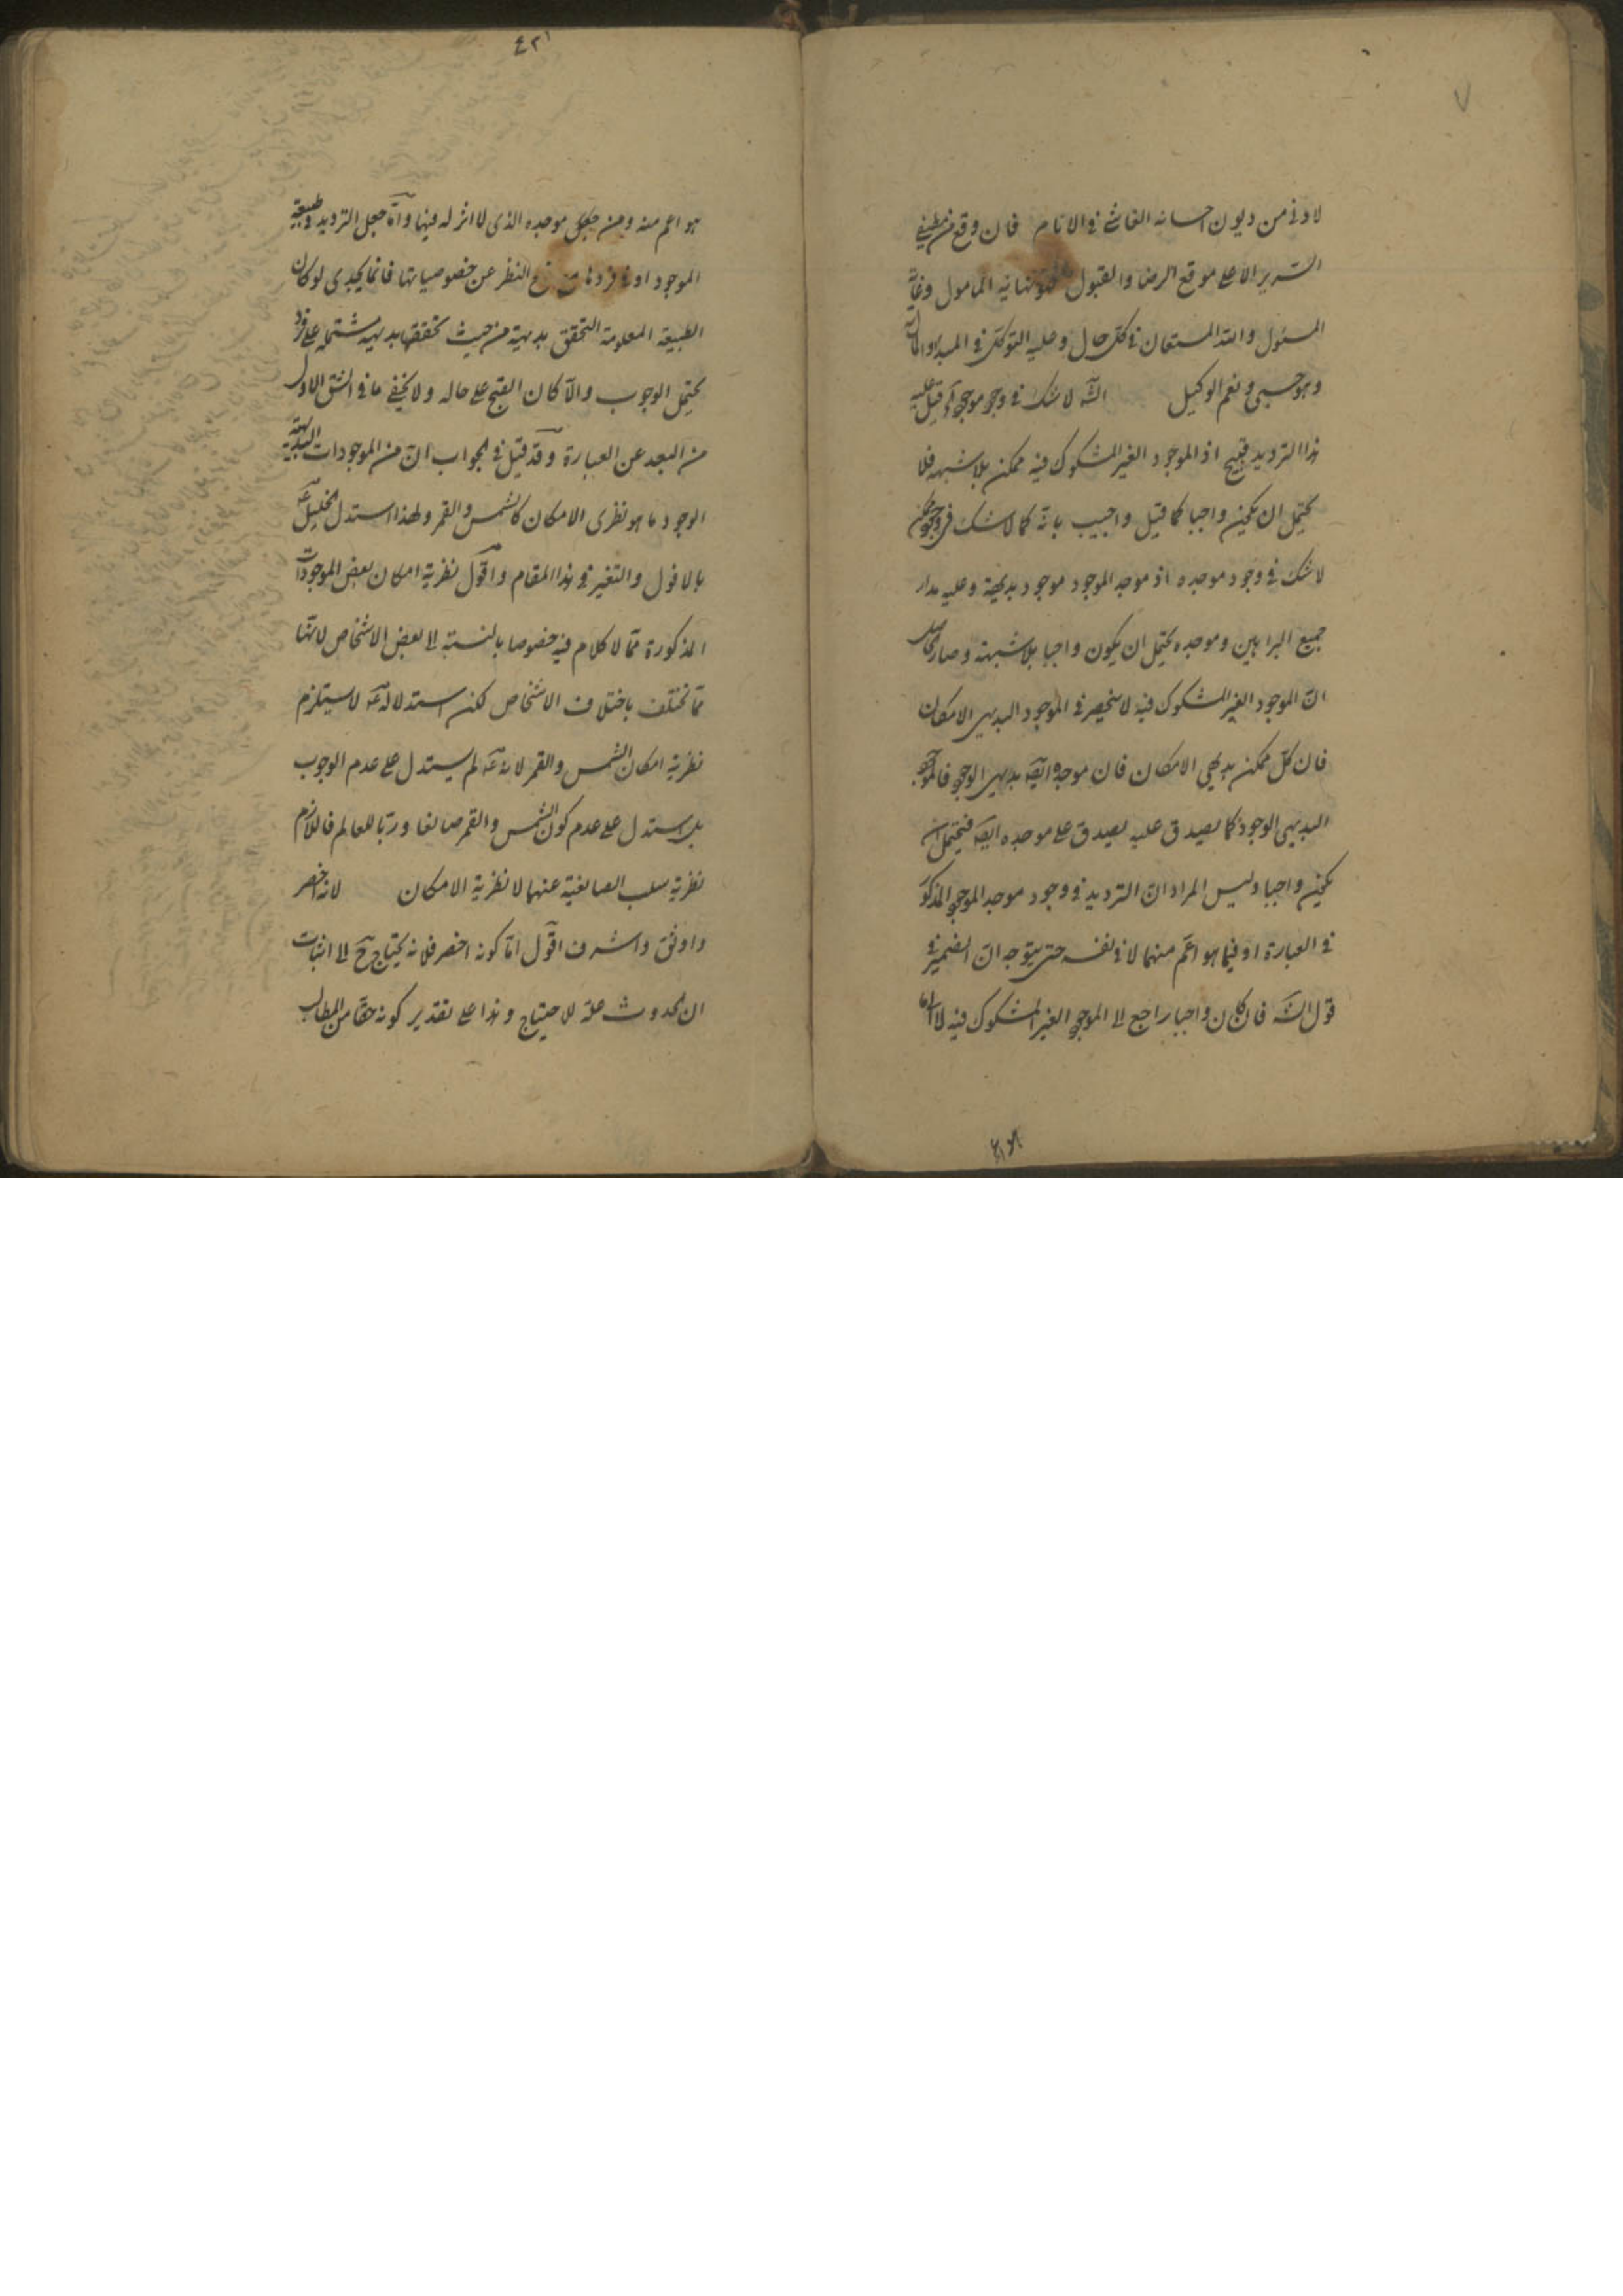 ٧
لادنى من ديون احسانه الفائح فى الانام فان وقع من
السرير الاعلى موقع الرضا والقبول فهو نهاية المامول وغاية
المسئول والله المستعان فى كل حال وعليه التوكل فى المبدا والمآل
وهو حسبى ونعم الوكيل الشه لا شك فى وجو موجو قيل عليه
هذا الترديد قبيح اذ الموجود الغير المشكوك فيه ممكن بلا شبهه فلا
يحتمل ان يكون واجبا كما قيل واجيب بانه كما لا شك فى وجو ممكن
لا شك فى وجود موجده اذ موجد الموجود موجود بديهة وعليه مدار
جميع البراهين وموجده يحتمل ان يكون واجبا بلا شبهته وصار الحاصل
ان الموجود الغير المشكوك فيه لا ينحصر فى الموجود البديهى الامكان
فان كل ممكن بديهى الامكان فان موجده ايضه بديهى الوجو فالموجو
البديهى الوجود كما يصدق عليه يصدق على موجده ايضه فيحتمل ان
يكون واجبا وليس المراد ان الترديد فى وجود موجد الموجو المذكور
فى العبارة او فيما هو اعم منهما لا فى نفسه حتى يتوجه ان الضمير فى
قول الشه فان كان واجبا راجع الى الموجو الغير المشكوك فيه لا الى ما
هو اعم منه ومن موجده الذى لا اثر له فيها واما جعل الترديد فى طبيعة
الموجود او فى فردها مع النظر عن خصوصياتها فانما يجدى لو كان
الطبيعة المعلومة التحقق بديهية من حيث تحققها بديهيه مشتمله على فرد
يحتمل الوجوب والا كان القبح على حاله ولا يخفى ما فى الشق الاول
من البعد عن العبارة وقد قيل فى الجواب ان من الموجودات البديهية
الوجود ما هو نظرى الامكان كالشمس والقمر ولهذا استدل الخليل عه
بالافول والتغير فى هذا المقام واقول نظرية امكان بعض الموجودات
المذكورة مما لا كلام فيه خصوصا بالنسبة الى بعض الاشخاص لانها
مما تختلف باختلاف الاشخاص لكن استدلاله عه لا يستلزم
نظرية امكان الشمس والقمر لانه عه لم يستدل على عدم الوجوب
بل استدل على عدم كون الشمس والقمر صانعا وربا للعالم فاللازم
نظرية سلب الصانعية عنهما لا نظرية الامكان لانه اخصر
واوثق واشرف اقول اما كونه اخصر فلانه يحتاج ح الى اثبات
ان الحدوث علة الاحتياج وهذا على تقدير كونه حقا من المطالب